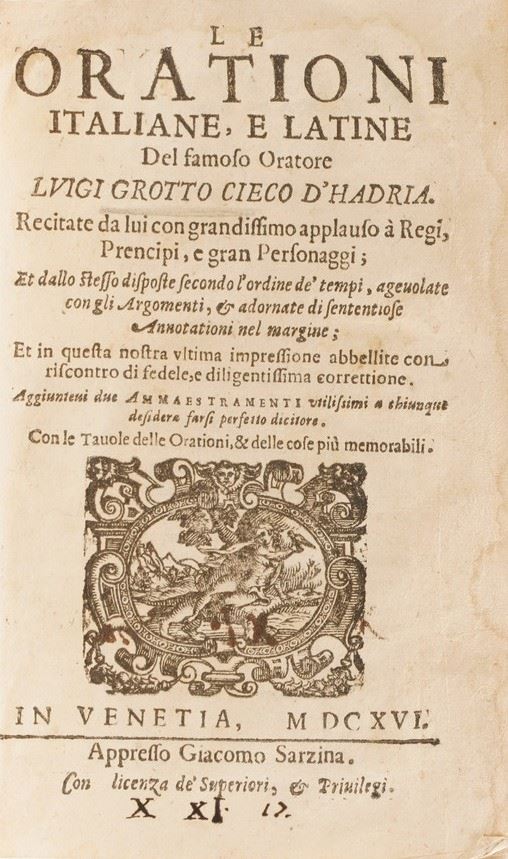 LE
ORATIONI
ITALIANE, E LATINE
Del famoſo Oratore
LVIGI GROTTO CIECO D'HADRIA.
Recitate da lui con grandiſſimo applauſo à Regi,
Prencipi, e gran Perſonaggi;
Et dallo ſteſſo diſpoſte ſecondo l'ordine de' tempi, ageuolate
con gli Argomenti, & adornate di ſententioſe
Annotationi nel margine;
Et in queſta noſtra vltima impreſſione abbellite con
riſcontro di fedele, e diligentiſſima correttione.
Aggiunteui due AMMAESTRAMENTI vtiliſſimi a chiunque
deſidera farſi perfetto dicitore.
Con le Tauole delle Orationi, & delle coſe più memorabili.
IN VENETIA, MDCXVI.
Appreſſo Giacomo Sarzina.
Con licenza de' Superiori, & Priuilegi.
X XI 17.